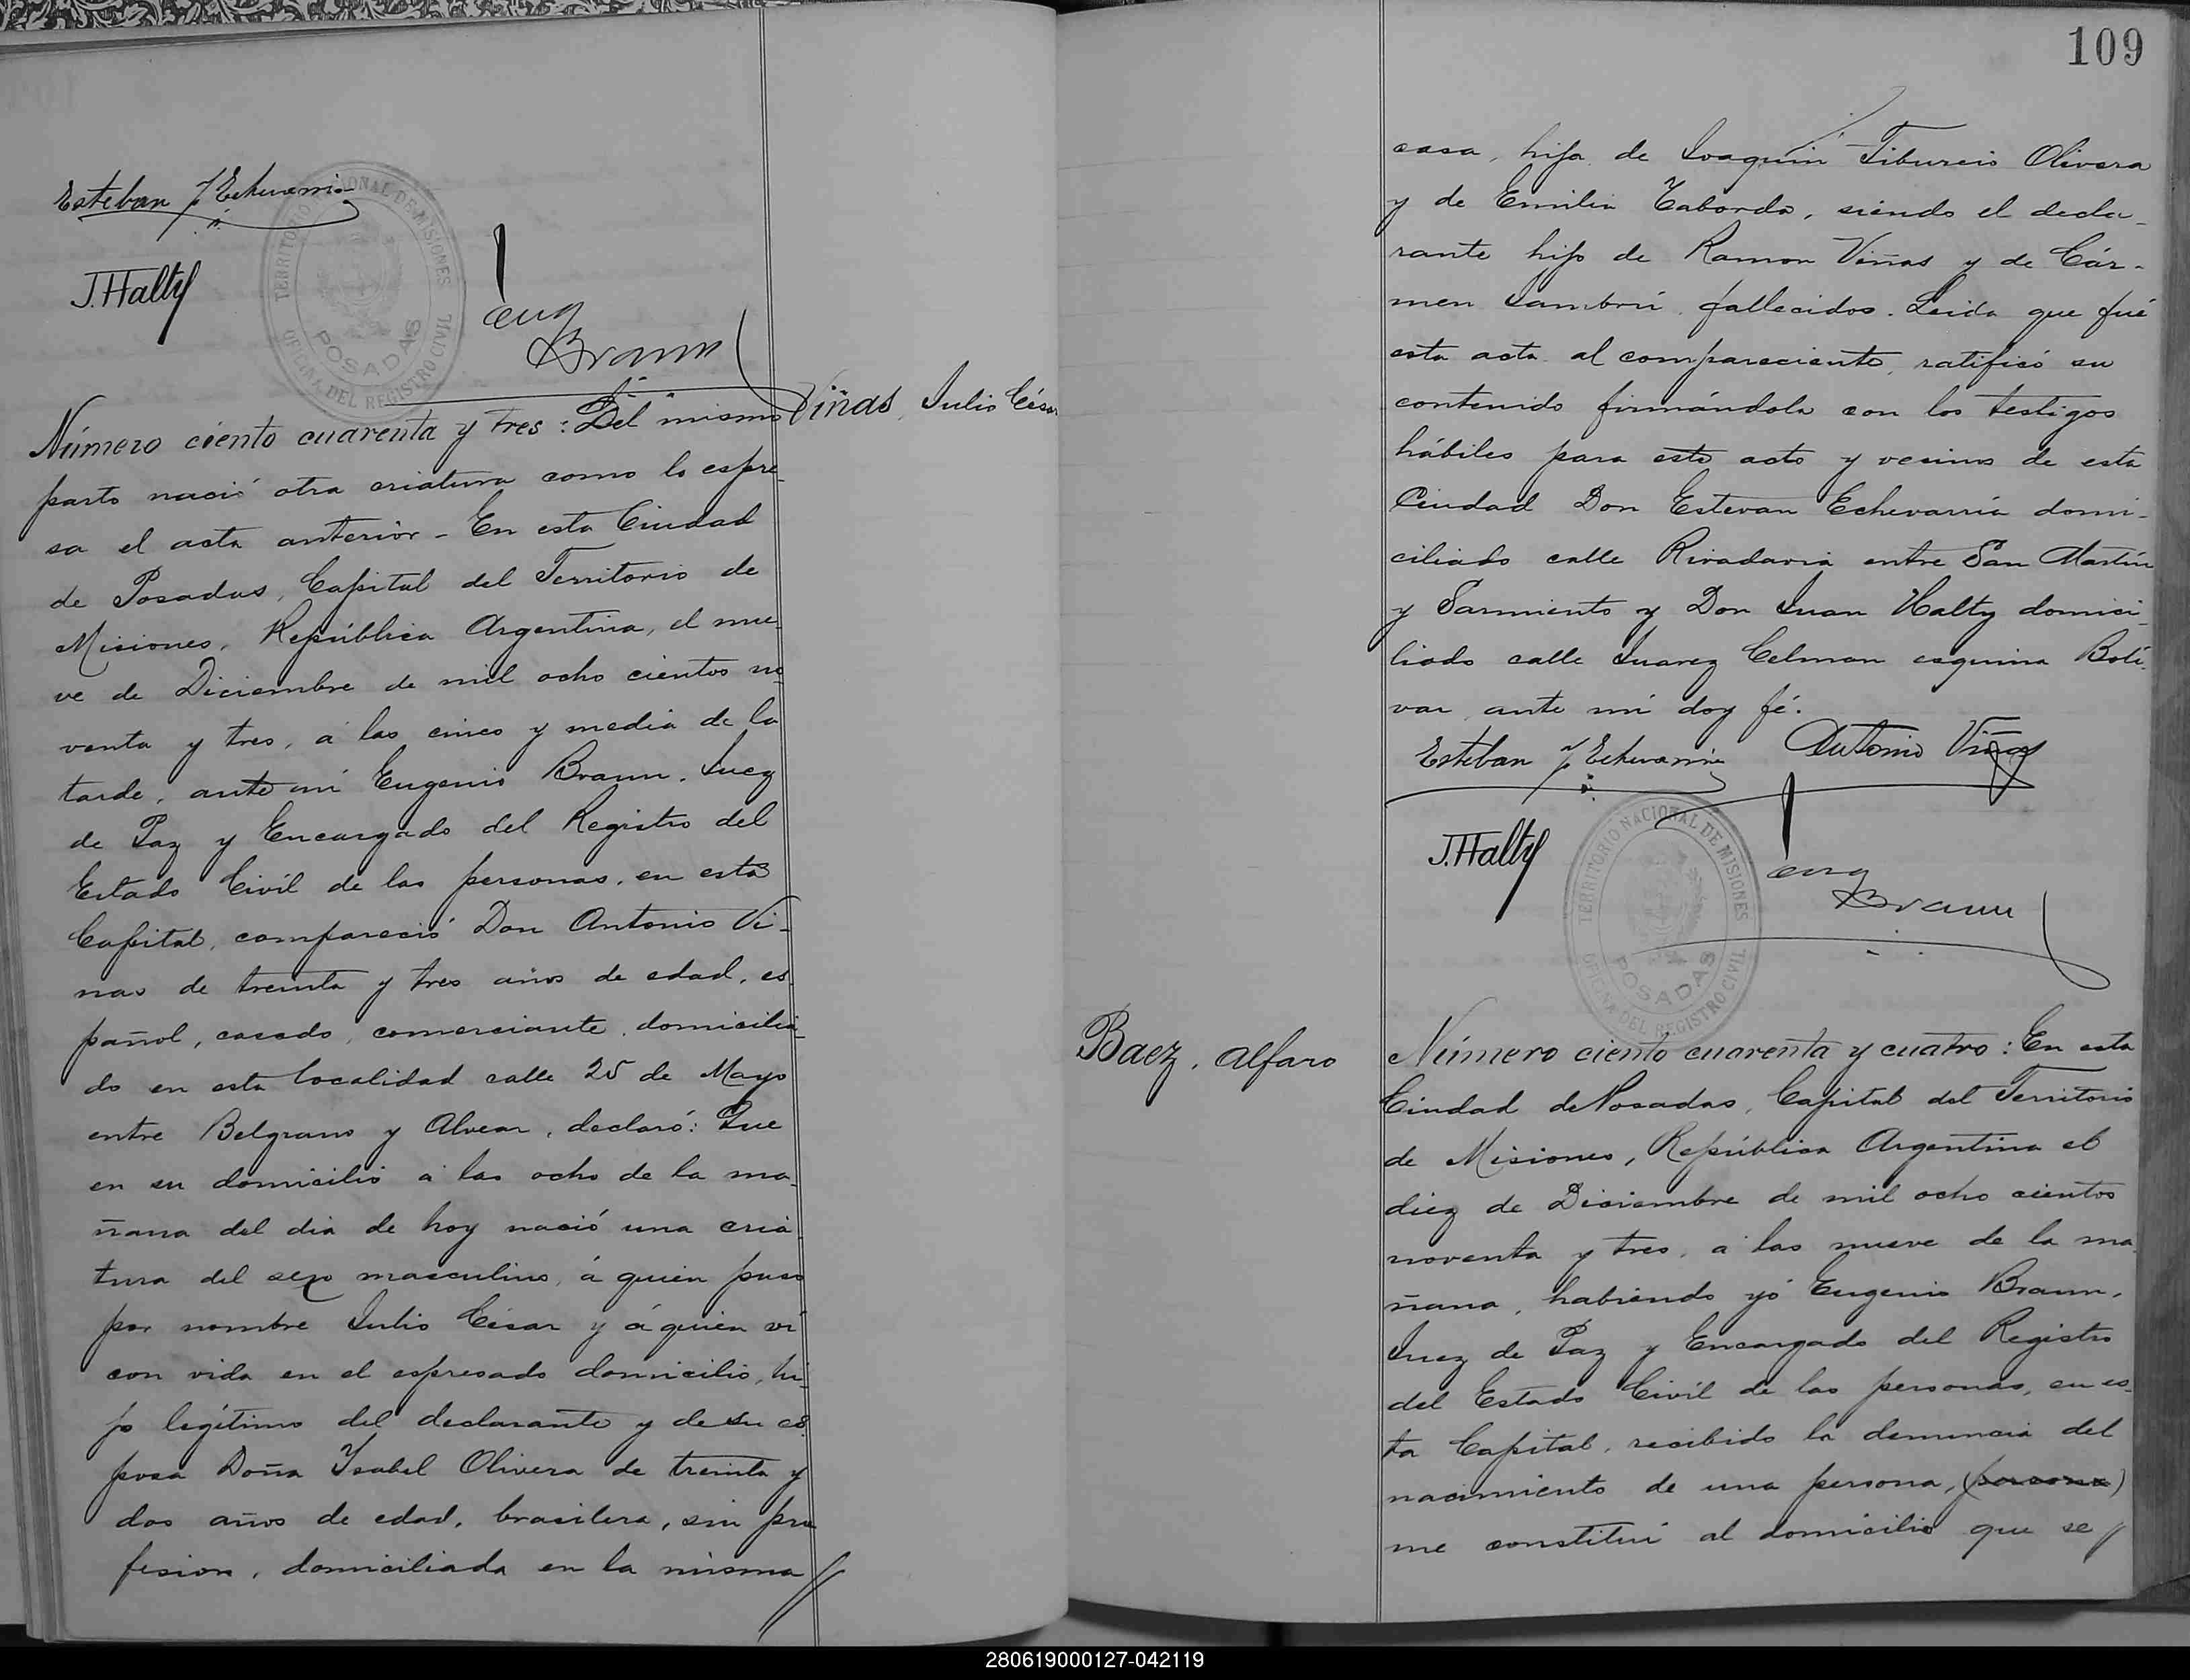 Esteban J Echevarria
J. Halty
Eug
Braun
TERRITORIO NACIONAL DE MISIONES
POSADAS
OFICINA DEL REGISTRO CIVIL
Viñas, Julio César
Número ciento cuarenta y tres: Del mismo
parto nació otra criatura como lo espre-
sa el acta anterior - En esta Ciudad
de Posadas, Capital del Territorio de
Misiones, República Argentina, el nue-
ve de Diciembre de mil ocho cientos no-
venta y tres, á las cinco y media de la
tarde, ante mí Eugenio Braun, Juez
de Paz y Encargado del Registro del
Estado Civil de las personas, en esta
Capital, compareció Don Antonio Vi-
ñas de treinta y tres años de edad, es-
pañol, casado, comerciante, domicilia-
do en esta localidad calle 25 de Mayo
entre Belgrano y Alvear, declaró: Que
en su domicilio á las ocho de la ma-
ñana del dia de hoy nació una cria-
tura del sexo masculino, á quien puso
por nombre Julio César y á quien ví
con vida en el espresado domicilio, hi-
jo legítimo del declarante y de su es-
posa Doña Ysabel Olivera de treinta y
dos años de edad, brasilera, sin pro-
fesion, domiciliada en la misma //
109
casa, hija de Joaquin Tiburcio Olivera
y de Emilia Taborda, siendo el decla-
rante hijo de Ramon Viñas y de Cár-
men Sambrú, fallecidos. Leida que fué
esta acta al compareciente, ratificó su
contenido firmándola con los testigos
hábiles para este acto y vecinos de esta
Ciudad Don Estevan Echevarria domi-
ciliado calle Rivadavia entre San Martin
y Sarmiento y Don Juan Halty domici-
liado calle Juarez Celman esquina Bolí-
var, ante mí doy fé.
Esteban J Echevarria Antonio Viñas
J. Halty
Eug
Braun
TERRITORIO NACIONAL DE MISIONES
POSADAS
OFICINA DEL REGISTRO CIVIL
Baez, Alfaro
Número ciento cuarenta y cuatro: En esta
Ciudad de Posadas, Capital del Territorio
de Misiones, República Argentina el
diez de Diciembre de mil ocho cientos
noventa y tres, á las nueve de la ma-
ñana, habiendo yó Eugenio Braun,
Juez de Paz y Encargado del Registro
del Estado Civil de las personas, en es-
ta Capital, recibido la denuncia del
nacimiento de una persona, (persona)
me constituí al domicilio que se //
280619000127-042119